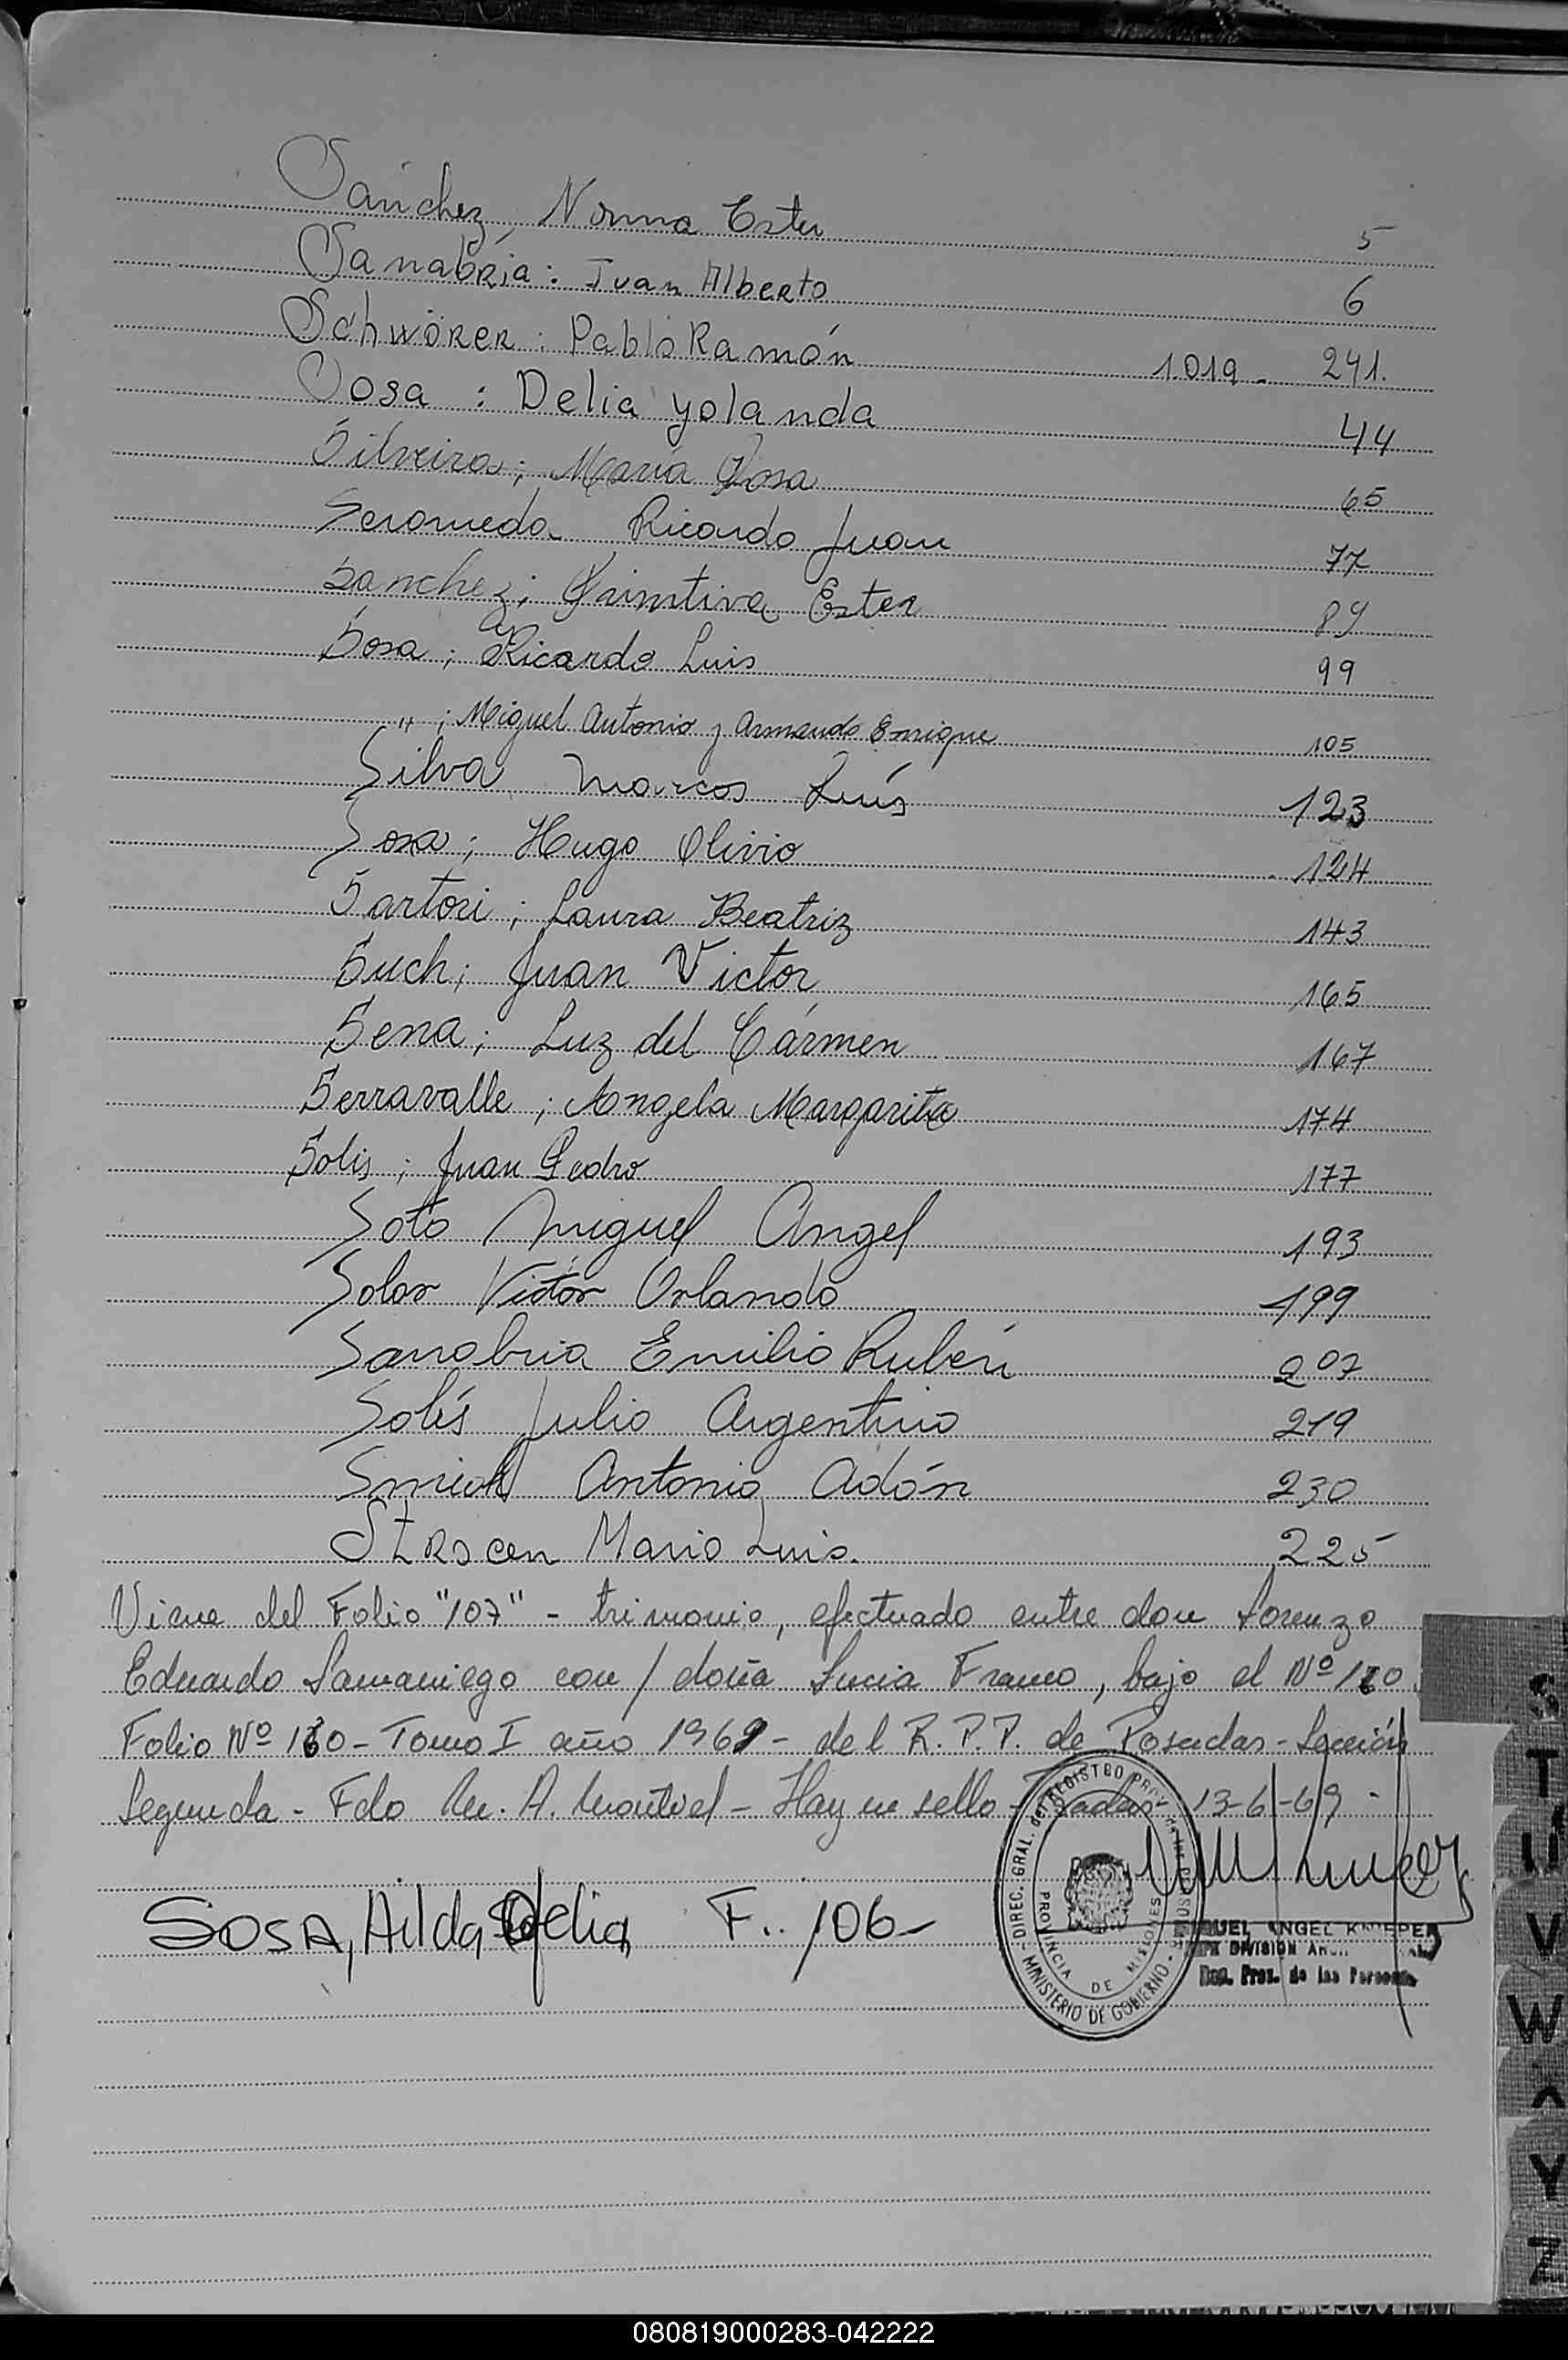 Sánchez, Norma Ester 5
Sanabria: Juan Alberto 6
Schwörer: Pablo Ramón 1.019- 241.
Sosa : Delia yolanda 44
Silveira; María Rosa 65
Ricardo Juan 77
Sanchez; Primitiva Ester 89
Sosa; Ricardo Luis 99
" ; Miguel Antonio y Armando Enrique 105
Silva Marcos Luís 123
Sosa; Hugo Olivio 124
Sartori; Laura Beatriz 143
Such; Juan Victor 165
Sena; Luz del Cármen 167
Serravalle; Angela Margarita 174
Solis; Juan Pedro 177
Soto Miguel Angel 193
Solar Victor Orlando 199
Sanabria Emilio Rubén 207
Solís Julio Argentino 219
Antonio Adón 230
Mario Luis. 225
Viene del Folio "107" - trimonio, efectuado entre don Lorenzo
Eduardo Samaniego con / doña Lucia Franco, bajo el Nº
Folio Nº - Tomo I año 1969 - del R.P.P. de Posadas - Sección
Segunda - Fdo M. A. Montiel - Hay un sello - Posadas 13-6-69 -
SOSA, Hilda F.. 106-
DIREC. GRAL. del REGISTRO PROV. de las
MINISTERIO DE GOBIERNO
PROVINCIA DE MISIONES
MIGUEL ANGEL
DIVISION
Prov. de las Personas
S
T
U
V
W
X
Y
Z
080819000283-042222